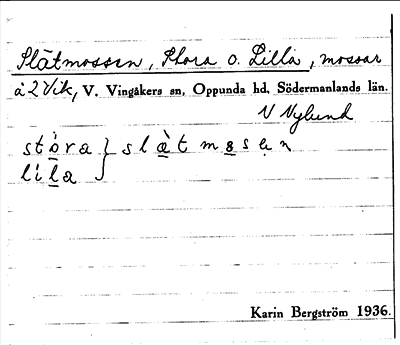 Slätmossen, Stora o. Lilla, mossar
å 2 Vik, V. Vingåkers sn, Oppunda hd, Södermanlands län.
V Nylund
stòra } slàt mosen
lila
Karin Bergström 1936.